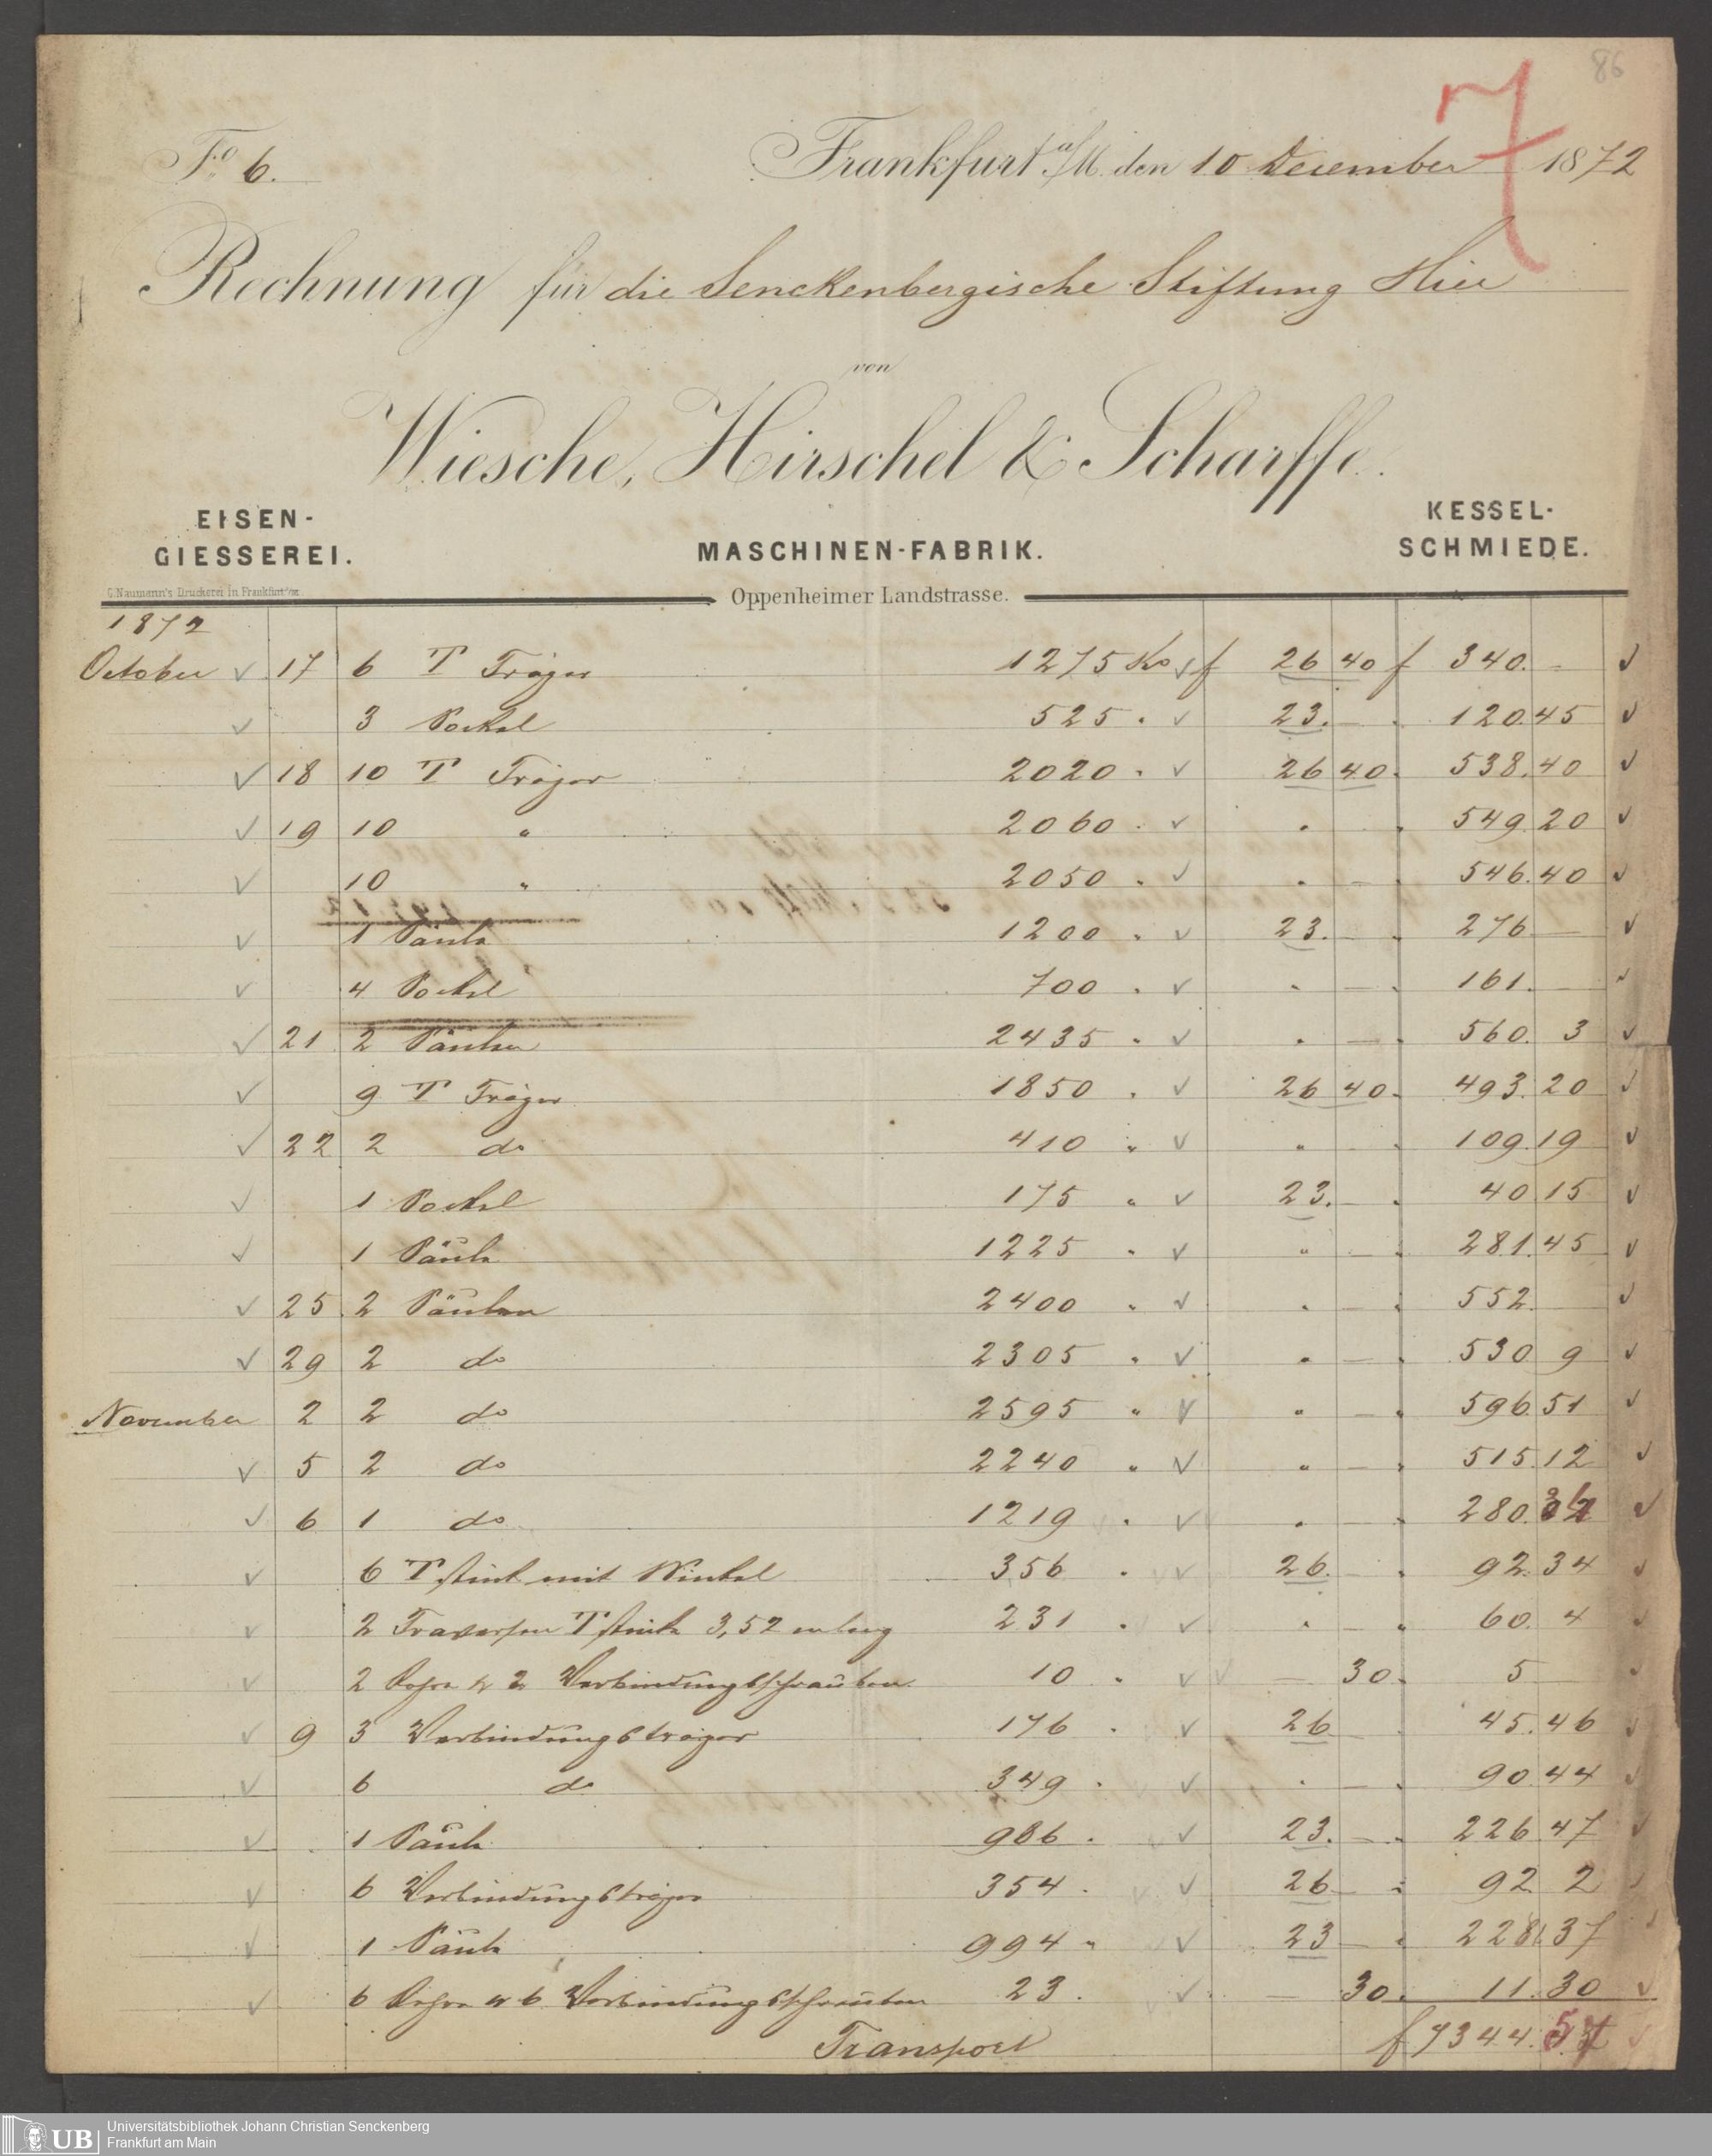 86
7
Fo 6.
Frankfurt a/M. den 10 December 1872
Rechnung für die Senckenbergische Stiftung Hier
von
Wiesche, Hirschel & Scharffe.
EISEN-
GIESSEREI.
MASCHINEN-FABRIK.
KESSEL-
SCHMIEDE.
C. Naumann's Druckerei in Frankfurt a/M.
Oppenheimer Landstrasse.
1872
October 17 6 T Träger 1275 Ko f 26 40 f 340. —
3 Sockel 525 " 23. — 120.45
18 10 T Träger 2020 " 26 40 538.40
19 10 " 2060 " " 549.20
10 " 2050 " " — 546.40
1 Säule 1200 " 23. — 276 —
4 Sockel 700 " " — 161. —
21 2 Säulen 2435 " " — 560. 3
9 T Träger 1850 " 26 40 493.20
22 2 do 410 " " 109.19
1 Sockel 175 " 23. — 40 15
1 Säule 1225 " " — 281.45
25 2 Säulen 2400 " " — 552.
29 2 do 2305 " " — 530 9
November 2 2 do 2595 " " — 596.51
5 2 do 2240 " " — 515.12
6 1 do 1219 " " — 280.
6 T Stück mit Winkel 356 " 26. — 92.34
2 Traversen T Stück 3,52 m lang 231 " " — 60. 4
2 2 Verbindungsschrauben 10 " — 30 5 —
9 3 Verbindungsträger 176 " 26 — 45.46
6 do 349 " " — 90 44
1 Säule 986 " 23. — 226 47
6 Verbindungsträger 354 " 26 — 92 2
1 Säule 994 " 23 — 228.37
6 6 Verbindungsschrauben 23 " — 30 11.30
Transport f 7344.
UB
Universitätsbibliothek Johann Christian Senckenberg
Frankfurt am Main